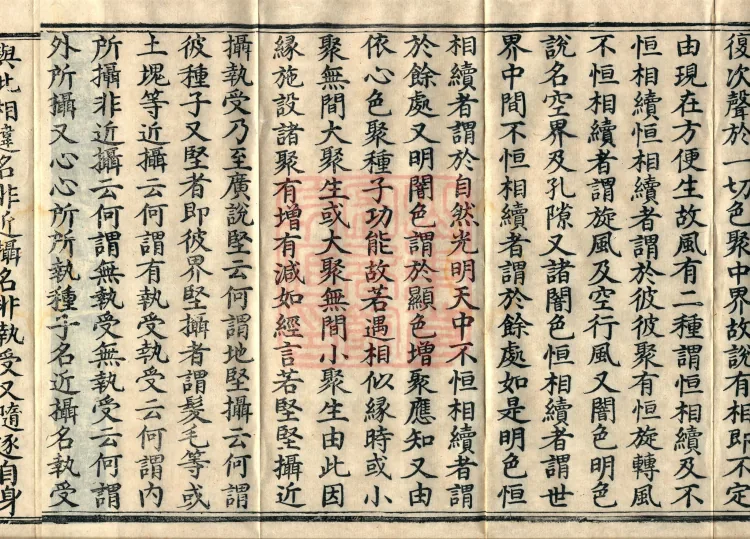 復次聲於一切色聚中界故說有相即不定
由現在方便生故風有二種謂恒相續及不
恒相續恒相續者謂於彼彼聚有恒旋轉風
不恒相續者謂旋風及空行風又闇色明色
說名空界及孔隙又諸闇色恒相續者謂世
界中間不恒相續者謂於餘處如是明色恒
相續者謂於自然光明天中不恒相續者謂
於餘處又明闇色謂於顯色增聚應知又由
依心色聚種子功能故若遇相似緣時或小
聚無間大聚生或大聚無間小聚生由此因
緣施設諸聚有增有減如經言若堅堅攝近
攝執受乃至廣說堅云何謂地堅攝云何謂
彼種子又堅者即彼界堅攝者謂髮毛等或
土塊等近攝云何謂有執受執受云何謂內
所攝非近攝云何謂無執受無執受云何謂
外所攝又心心所所執種子名近攝名執受
與此相違名非近攝名非執受又隨逐自身